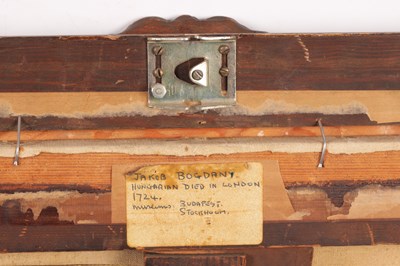 JAKOB BOGDANY.
HUNGARIAN DIED IN LONDON
1724.
MUSEUMS: BUDAPEST.
STOCKHOLM.